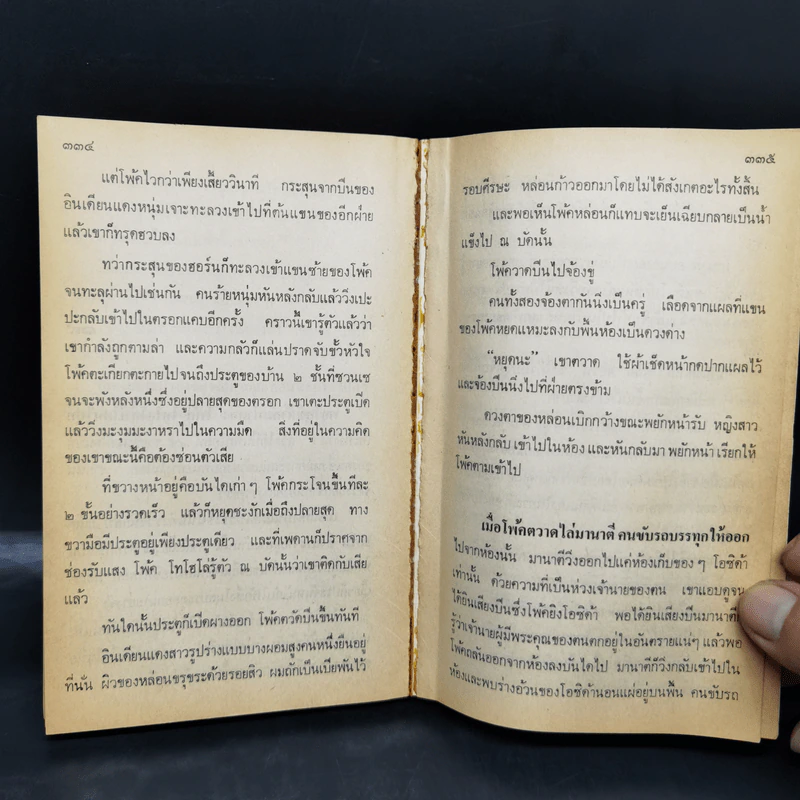 ๓๓๔
แต่โฟ้คไวกว่าเพียงเสี้ยววินาที กระสุนจากปืนของ
อินเดียนแดงหนุ่มเจาะทะลวงเข้าไปที่ต้นแขนของอีกฝ่าย
แล้วเขาก็ทรุดฮวบลง
ทว่ากระสุนของฮอร์นก็ทะลวงเข้าแขนซ้ายของโฟ้ค
จนทะลุผ่านไปเช่นกัน คนร้ายหนุ่มหันหลังกลับแล้ววิ่งเปะ
ปะกลับเข้าไปในตรอกแคบอีกครั้ง คราวนี้เขารู้ตัวแล้วว่า
เขากำลังถูกตามล่า และความกลัวก็แล่นปราดจับขั้วหัวใจ
โฟ้คตะเกียกตะกายไปจนถึงประตูของบ้าน ๒ ชั้นที่ซวนเซ
จนจะพังหลังหนึ่งซึ่งอยู่ปลายสุดของตรอก เขาเตะประตูเปิด
แล้ววิ่งมะงุมมะงาหราไปในความมืด สิ่งที่อยู่ในความคิด
ของเขาขณะนี้คือต้องซ่อนตัวเสีย
ที่ขวางหน้าอยู่คือบันไดเก่า ๆ โฟ้คกระโจนขึ้นทีละ
๒ ขั้นอย่างรวดเร็ว แล้วก็หยุดชะงักเมื่อถึงปลายสุด ทาง
ขวามือมีประตูอยู่เพียงประตูเดียว และที่เพดานก็ปราศจาก
ช่องรับแสง โฟ้ค โทโฮโล่รู้ตัว ณ บัดนั้นว่าเขาติดกับเสีย
แล้ว
ทันใดนั้นประตูก็เปิดผางออก โฟ้คตวัดปืนขึ้นทันที
อินเดียนแดงสาวรูปร่างแบบบางผอมสูงคนหนึ่งยืนอยู่
ที่นั่น ผิวของหล่อนขรุขระด้วยรอยสิว ผมถักเป็นเปียพันไว้
๓๓๕
รอบศีรษะ หล่อนก้าวออกมาโดยไม่ได้สังเกตอะไรทั้งสิ้น
และพอเห็นโฟ้คหล่อนก็แทบจะเย็นเฉียบกลายเป็นน้ำ
แข็งไป ณ บัดนั้น
โฟ้ควาดปืนไปจ้องขู่
คนทั้งสองจ้องตากันนิ่งเป็นครู่ เลือดจากแผลที่แขน
ของโฟ้คหยดแหมะลงกับพื้นห้องเป็นดวงด่าง
“หยุดนะ” เขาตวาด ใช้ผ้าเช็ดหน้ากดปากแผลไว้
และจ้องปืนนิ่งไปที่ฝ่ายตรงข้าม
ดวงตาของหล่อนเบิกกว้างขณะพยักหน้ารับ หญิงสาว
หันหลังกลับ เข้าไปในห้อง และหันกลับมา พยักหน้า เรียกให้
โฟ้คตามเข้าไป
เมื่อโฟ้คตวาดไล่มานาตี คนขับรถบรรทุกให้ออก
ไปจากห้องนั้น มานาตีวิ่งออกไปแค่ห้องเก็บของ ๆ โอซิด้า
เท่านั้น ด้วยความที่เป็นห่วงเจ้านายของตน เขาแอบดูจน
ได้ยินเสียงปืนซึ่งโฟ้คยิงโอซิด้า พอได้ยินเสียงปืนมานาตี
รู้ว่าเจ้านายผู้มีพระคุณของตนตกอยู่ในอันตรายแน่ๆ แล้วพอ
โฟ้คถลันออกจากห้องลงบันไดไป มานาตีก็วิ่งกลับเข้าไปใน
ห้องและพบร่างอ้วนของโอซิด้านอนแผ่อยู่บนพื้น คนขับรถ